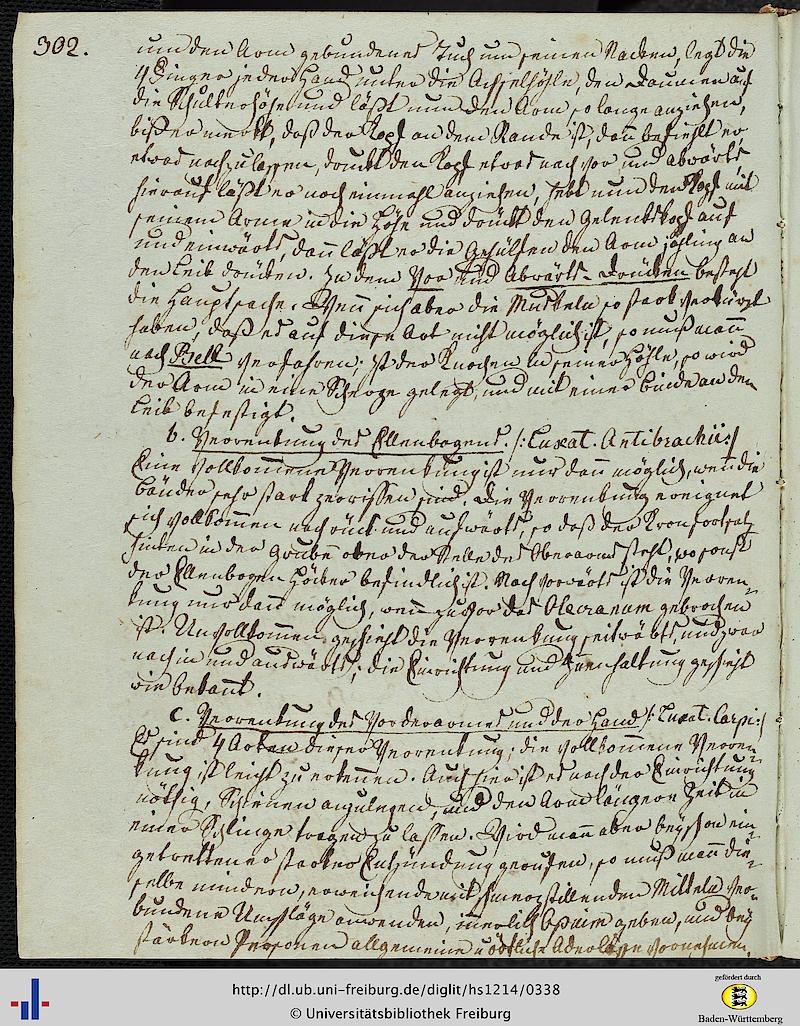 302.
um den Arm gebundenes Tuch um seinen Nacken, legt die
4 Finger jeder Hand unter die Achselhöhle, den Daumen auf
die Schulterhöhe und läßt nun den Arm so lange anziehen,
biß er merkt, daß der Kopf an dem Rande ist, dann befiehlt er
etwas nachzulassen, druckt den Kopf etwas nach vor und abwärts
hierauf läßt er noch einmahl anziehen, hebt nun den Kopf mit
seinem Arme in die Höhe und drückt den Gelenkskopf auf
und einwärts, dann läßt er die Gehülfen den Arm jähling an
den Leib drücken. In dem Vor und Abwärts-Drücken besteht
die Hauptsache. Wenn sich aber die Muskeln so stark verkürzt
haben, daß es auf diese Art nicht möglich ist, so muß mann
nach Bell verfahren; Ist der Knochen in seiner Höhle, so wird
der Arm in eine Scherpe gelegt, und mit einer Binde an den
Leib befestigt.
b. Verrenkung des Ellenbogens. /: Luxat. Antibrachii :/
Eine vollkommene Verrenkung ist nur dann möglich, wenn die
Bänder sehr stark zerrissen sind. Die Verrenkung ereignet
sich vollkommen nach rück und aufwärts, so daß der Kronfortsatz
hinten in der Grube ober der Rolle des Oberarms steht, wo sonst
der Ellenbogen Höcker befindlich ist. Nach vorwärts ist die Verren-
kung nur dann möglich, wenn zuvor das Olecranum gebrochen
ist. Unvollkommen geschieht die Verrenkung seitwärts, und zwar
nach in und auswärts; die Einrichtung und Innhaltung geschieht
wie bekannt.
c. Verrenkung des Vorderarmes und der Hand /: Luxat. Carpi :/
Es sind 4 Arten dieser Verrenkung; die vollkommene Verren-
kung ist leicht zu erkennen. Auch hier ist es nach der Einrichtung
nöthig, Schienen anzulegen, und den Arm längere Zeit in
einer Schlinge tragen zu lassen. Wird mann aber bey schon ein-
getrettener starker Entzündung gerufen, so muß mann die-
selbe mindern, erweichende mit schmerzstillenden Mitteln ver-
bundene Umschläge anwenden, innerlich Opium geben, und bey
stärkern Personen allgemeine u örtliche Aderlässe vornehmen.
http://dl.ub.uni-freiburg.de/diglit/hs1214/0338
© Universitätsbibliothek Freiburg
gefördert durch
Baden-Württemberg